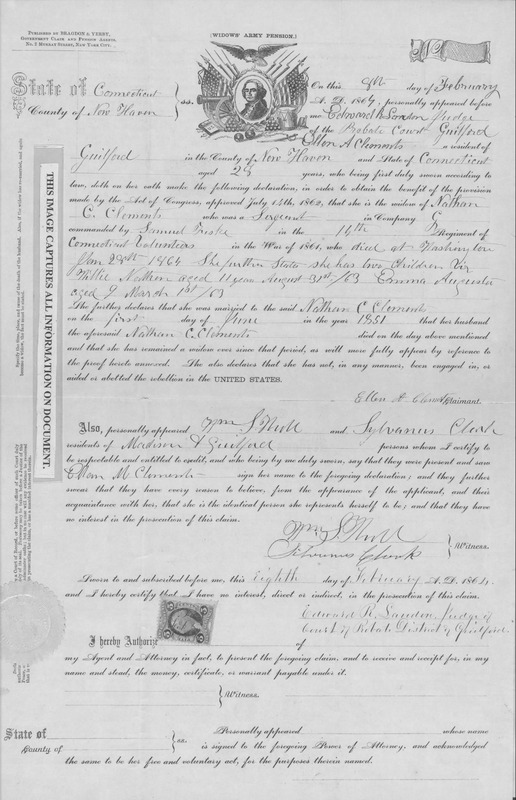 PUBLISHED BY BRAGDON & YERBY,
GOVERNMENT CLAIM AND PENSION AGENTS,
No. 5 MURRAY STREET, NEW YORK CITY.
(WIDOWS' ARMY PENSION.)
State of Connecticut
County of New Haven
ss.
On this 8th day of February
A. D. 1864, personally appeared before
me Edward R Landon Judge
of the Probate Court Guilford
Ellen A Clements a resident of
Guilford in the County of New Haven and State of Connecticut
aged 28 years, who being first duly sworn according to
law, doth on her oath make the following declaration, in order to obtain the benefit of the provision
made by the Act of Congress, approved July 14th, 1862, that she is the widow of Nathan
C. Clements who was a Sergeant in Company G
commanded by Samuel Fiske in the 14th Regiment of
Connecticut Volunteers in the War of 1861, who died at Washington
Jan 28th 1864 She further States she has two Children Viz
Willie Nathan aged 11 year August 31st/63 Emma Augusta
aged 9 March 1st/63
She further declares that she was married to the said Nathan C Clements
on the first day of June in the year 1851 that her husband
the aforesaid Nathan C. Clements died on the day above mentioned
and that she has remained a widow ever since that period, as will more fully appear by reference to
the proof hereto annexed. She also declares that she has not, in any manner, been engaged in, or
aided or abetted the rebellion in the UNITED STATES.
Ellen A Claimant.
Also, personally appeared Wm S and Sylvanus Clark
residents of Madison & Guilford persons whom I certify to
be respectable and entitled to credit, and who being by me duly sworn, say that they were present and saw
Ellen M Clements sign her name to the foregoing declaration; and they further
swear that they have every reason to believe, from the appearance of the applicant, and their
acquaintance with her, that she is the identical person she represents herself to be; and that they have
no interest in the prosecution of this claim.
Wm S
Sylvanus Clark
Witness.
Sworn to and subscribed before me, this Eighth day of February A. D. 1864
and I hereby certify that I have no interest, direct or indirect, in the prosecution of this claim.
Edward R. Landon, Judge of
Court of Probate District of Guilford
I hereby Authorize of
my Agent and Attorney in fact, to present the foregoing claim, and to receive and receipt for, in my
name and stead, the money, certificate, or warrant payable under it.
Witness.
State of
County of
ss.
Personally appeared whose name
is signed to the foregoing Power of Attorney, and acknowledged
the same to be her free and voluntary act, for the purposes therein named.
THIS IMAGE CAPTURES ALL INFORMATION ON DOCUMENT.